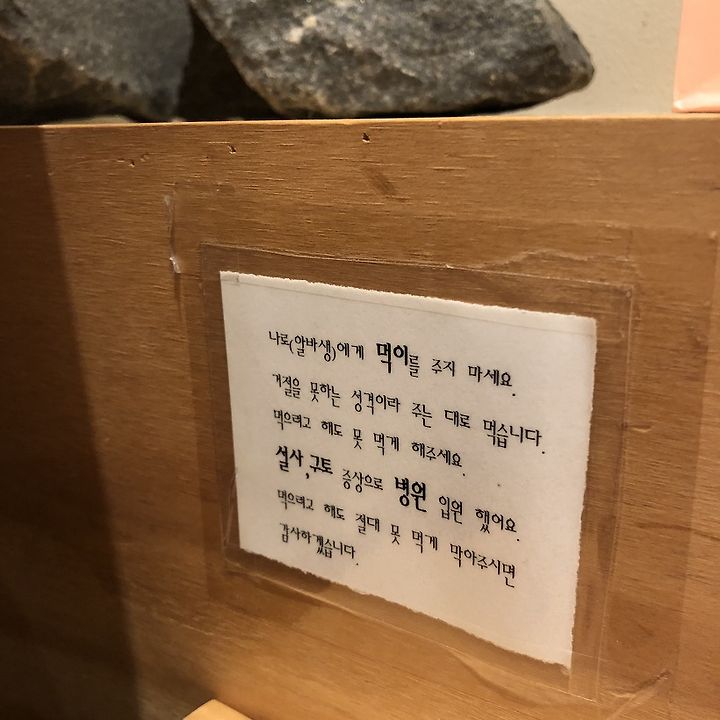 나로(알바생)에게 먹이를 주지 마세요.
거절을 못하는 성격이라 주는 대로 먹습니다.
먹으려고 해도 못 먹게 해주세요.
설사,구토 증상으로 병원 입원 했어요.
먹으려고 해도 절대 못 먹게 막아주시면
감사하겠습니다.